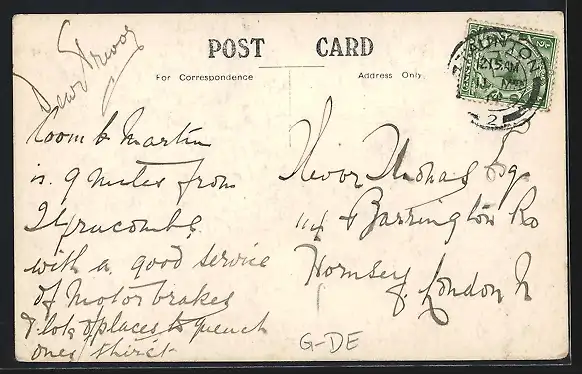 POST CARD
For Correspondence
Address Only
Dear Trevor
Coomb Martin
is 9 miles from
Ilfracombe
with a good service
of Motor brakes
& lots of places to quench
ones thirst
Trevor Thomas Esq
114 Barrington Ro
Hornsey
London N
12.15AM
2
G-DE